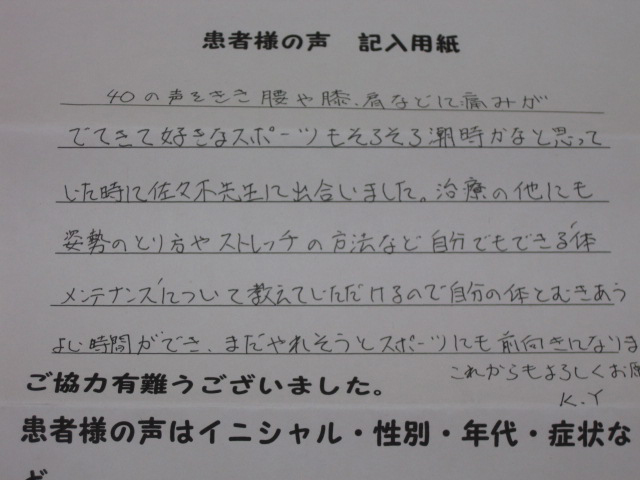 患者様の声　記入用紙
40の声をきき腰や膝、肩などに痛みが
でてきて好きなスポーツもそろそろ潮時かなと思って
いた時に佐々木先生に出合いました。治療の他にも
姿勢のとり方やストレッチの方法など自分でもできる体
メンテナンスについて教えていただけるので自分の体とむきあう
よい時間ができ、まだやれそうとスポーツにも前向きになりま
これからもよろしくお願
K.Y
ご協力有難うございました。
患者様の声はイニシャル・性別・年代・症状な
ど